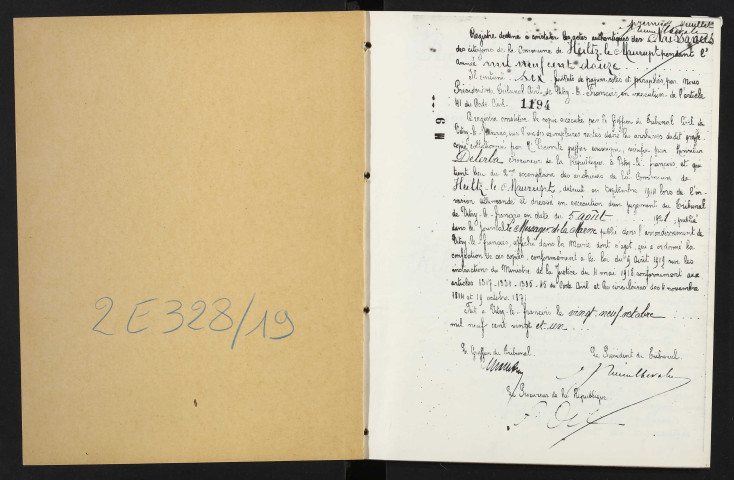 2 E 328/19
premier feuillet
Registre destiné à constater les actes authentiques des Naissances
des citoyens de la Commune de Heiltz-le-Maurupt pendant l'
année mil neuf cent douze
Il contient six feuillets de papier cotés et paraphés par Nous
Président du Tribunal Civil de Vitry-le-François, en exécution de l'article
41 du Code Civil. 1194
M 9
Ce registre constitue la copie exécutée par le Greffier du Tribunal Civil de
Vitry-le-François, sur l'un des exemplaires restés dans les archives dudit greffe
copie collationnée par Mr greffier soussigné, vérifiée par Monsieur
Procureur de la République à Vitry-le-François, et qui
tient lieu du 2me exemplaire des archives de la Commune de
Heiltz-le-Maurupt, détruit en Septembre 1914 lors de l'in-
vasion allemande et dressé en exécution d'un jugement du Tribunal
de Vitry-le-François en date du 5 août 1921, publié
dans le journal Le Messager de la Marne publié dans l'arrondissement de
Vitry-le-François, affiché dans la Mairie dont s'agit, qui a ordonné la
confection de ces copies, conformément à la loi du 9 Août 1919 sur les
instructions du Ministre de la Justice du 4 mai 1918 conformément aux
articles 1317-1334-1335-45 du Code Civil et les circulaires des 4 novembre
1814 et 19 octobre 1871
Fait à Vitry-le-François le vingt-neuf octobre
mil neuf cent vingt et un
Le Greffier du Tribunal. Le Président du Tribunal
Le Procureur de la République